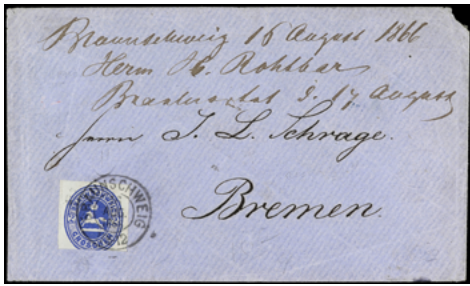 Braunschweig 16 August 1866
Herrn H. Rohtbar
Beantwortet d. 17 August
Herrn J. L. Schrage.
Bremen.
BRAUNSCHWEIG